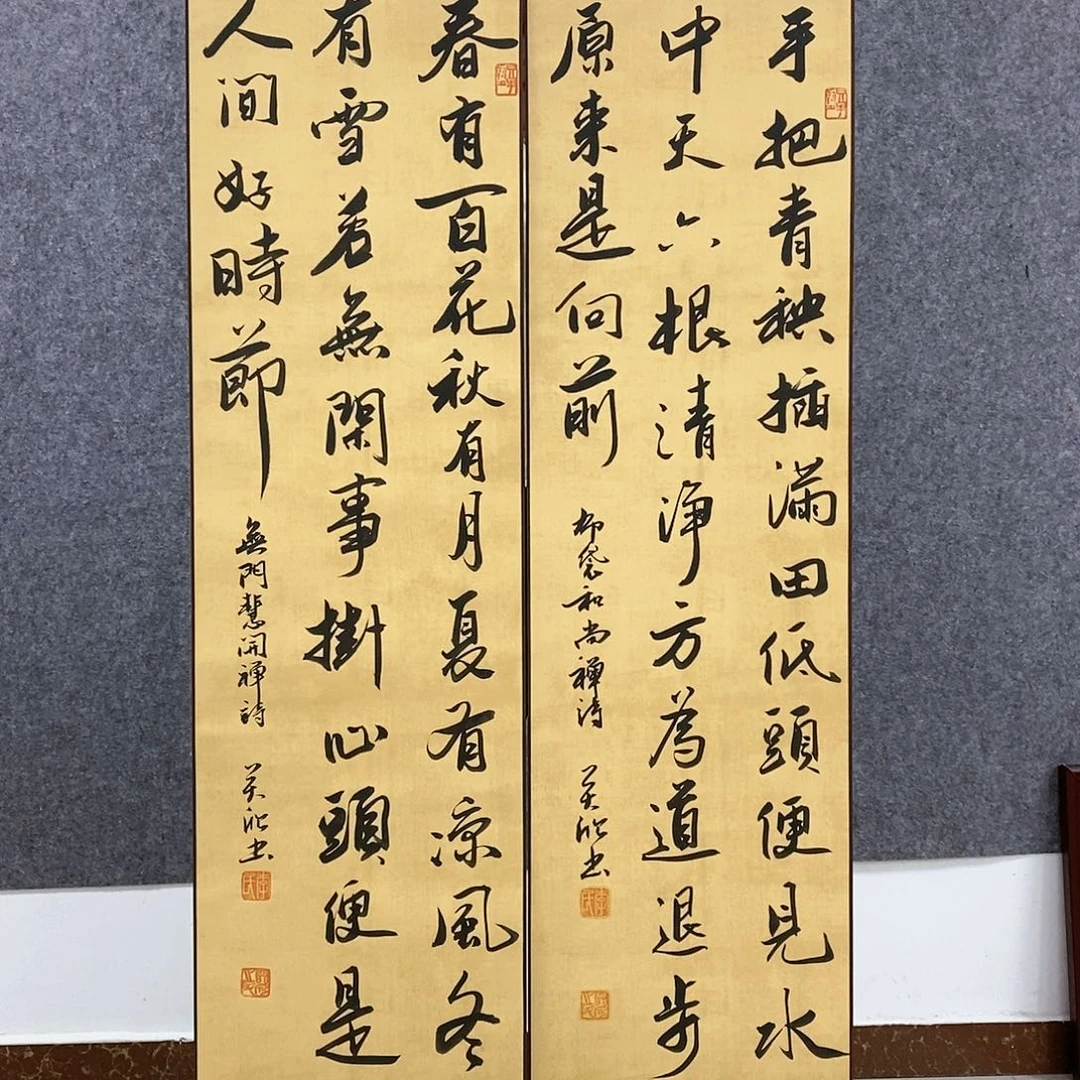 手把青秧插滿田低頭便見水
中天六根清淨方為道退步
原來是向前
布袋和尚禪詩 美欣書
春有百花秋有月夏有涼風冬
有雪若無閑事掛心頭便是
人間好時節
無門慧開禪詩 美欣書